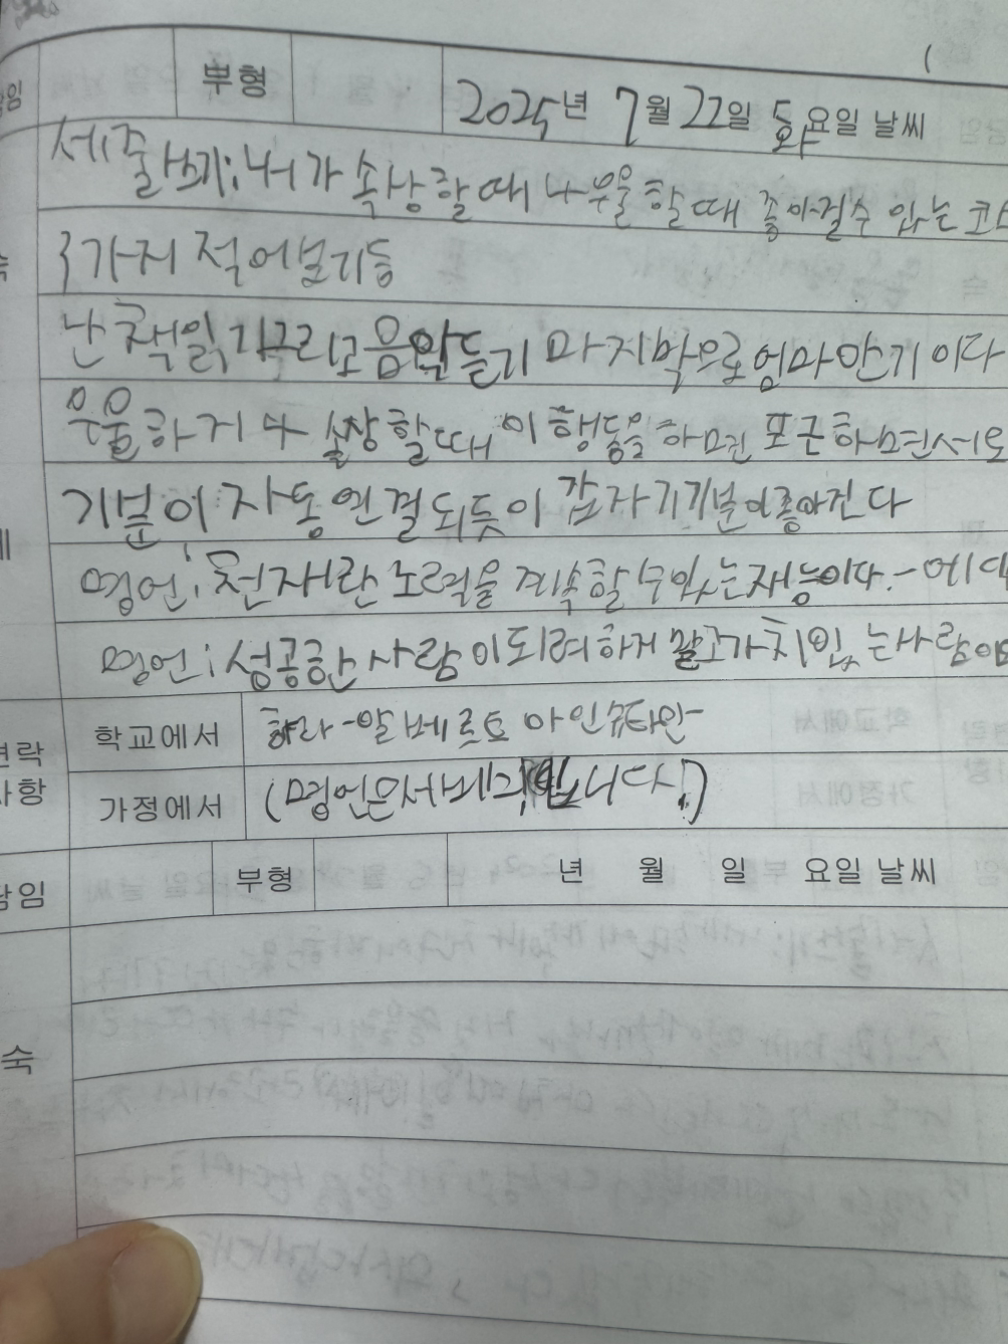 담임 부형 2025년 7월 22일 화요일 날씨
세줄쓰기: 내가 속상할때 나 우울 할 때 좋아질수 있는 코
3가지 적어보기등
난 책읽기 그리고 음악듣기 마지막으로 엄마안기 이다
우울하거나 할때 이 행동을 하면 포근하면서도
기분이 자동연결되듯이 갑자기 기분이좋아진다
명언: 천재란 노력을 계속할 수있는재능이다.-에디
명언: 성공한 사람이되려하게 말고가치있는사람이
학교에서 하라-알베르트 아인슈타인-
가정에서 (명언은세개입니다.)
연락
사항
담임 부형 년 월 일 요일 날씨
숙